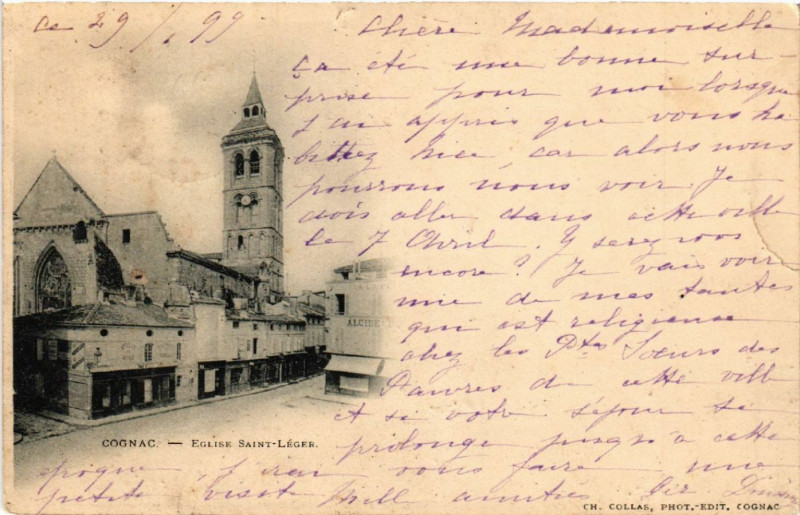 ce 29/ 99
Chère Mademoiselle
ça été une bonne sur-
prise pour moi lorsque
j'ai appris que vous ha
bittez Nice, car alors nous
pourrons nous voir. Je
dois aller dans cette ville
le 7 Avril. Y serez vous
encore? Je vais voir
une de mes tantes
qui est religieuse
chez les Ptes Sœurs des
Pauvres de cette ville
et si votre séjour se
prolonge jusqu'à cette
époque, j'irai vous faire une
petite visite. Mill amitiés
ALCIDE
COGNAC. — EGLISE SAINT-LÉGER.
CH. COLLAS, PHOT.-EDIT. COGNAC